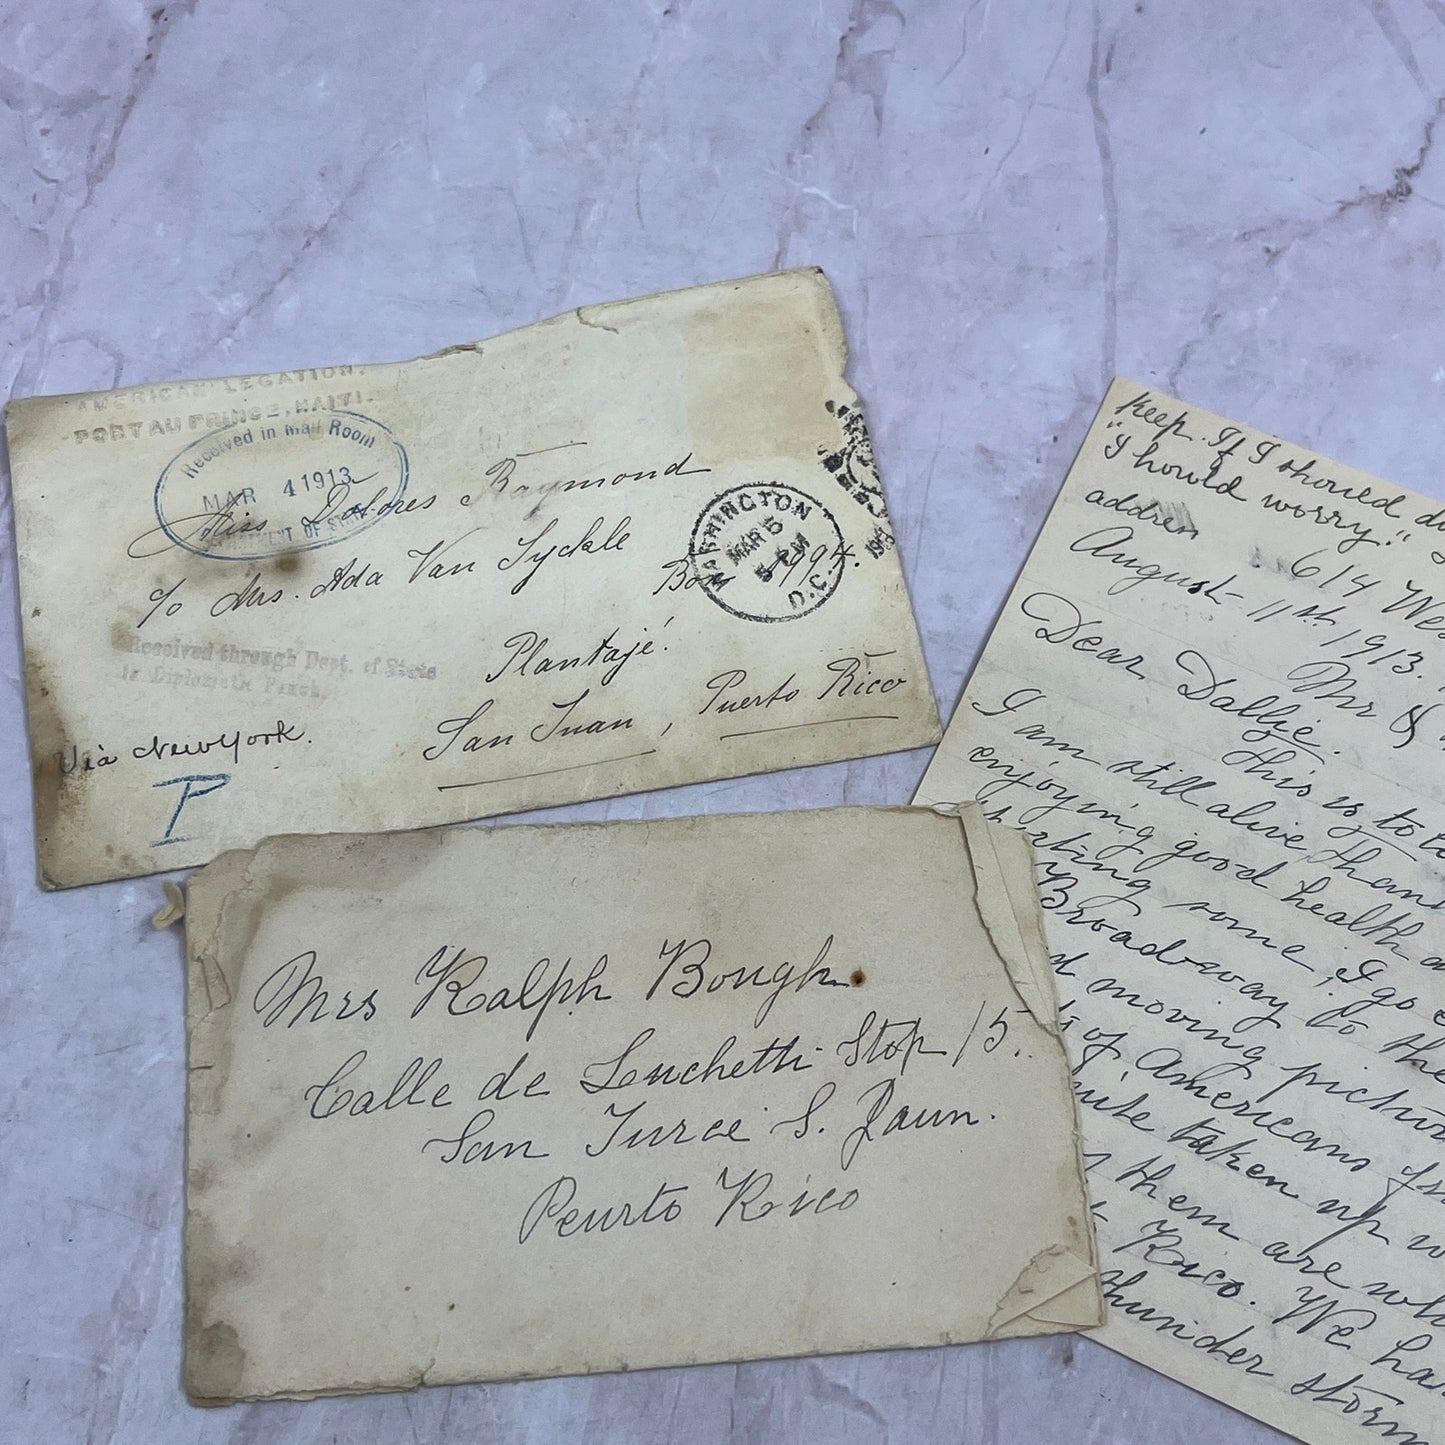 AMERICAN LEGATION,
PORT AU PRINCE, HAITI.
Received in Mail Room
MAR 4 1913
DEPARTMENT OF STATE
Miss Dolores Raymond
c/o Mrs. Ada Van Syckle
Box 1994.
WASHINGTON
MAR 5
D.C.
Plantajé.
Received through Dept. of State
in Diplomatic Pouch.
San Juan, Puerto Rico
Via New York.
P
Mrs Ralph Bough
Calle de Luchetti Stop 15.
San Turce S. Jaun.
Peurto Rico
Keep. If I should
"I hould worry."
address
614 Wes
August 11th 1913.
Mr &
Dear Dallie.
This is to
I am still alive, than
enjoying good health
some, I go
Broadway to the
moving pictur
of Americans
quite taken up
them are
Rico. We ha
thunder storm